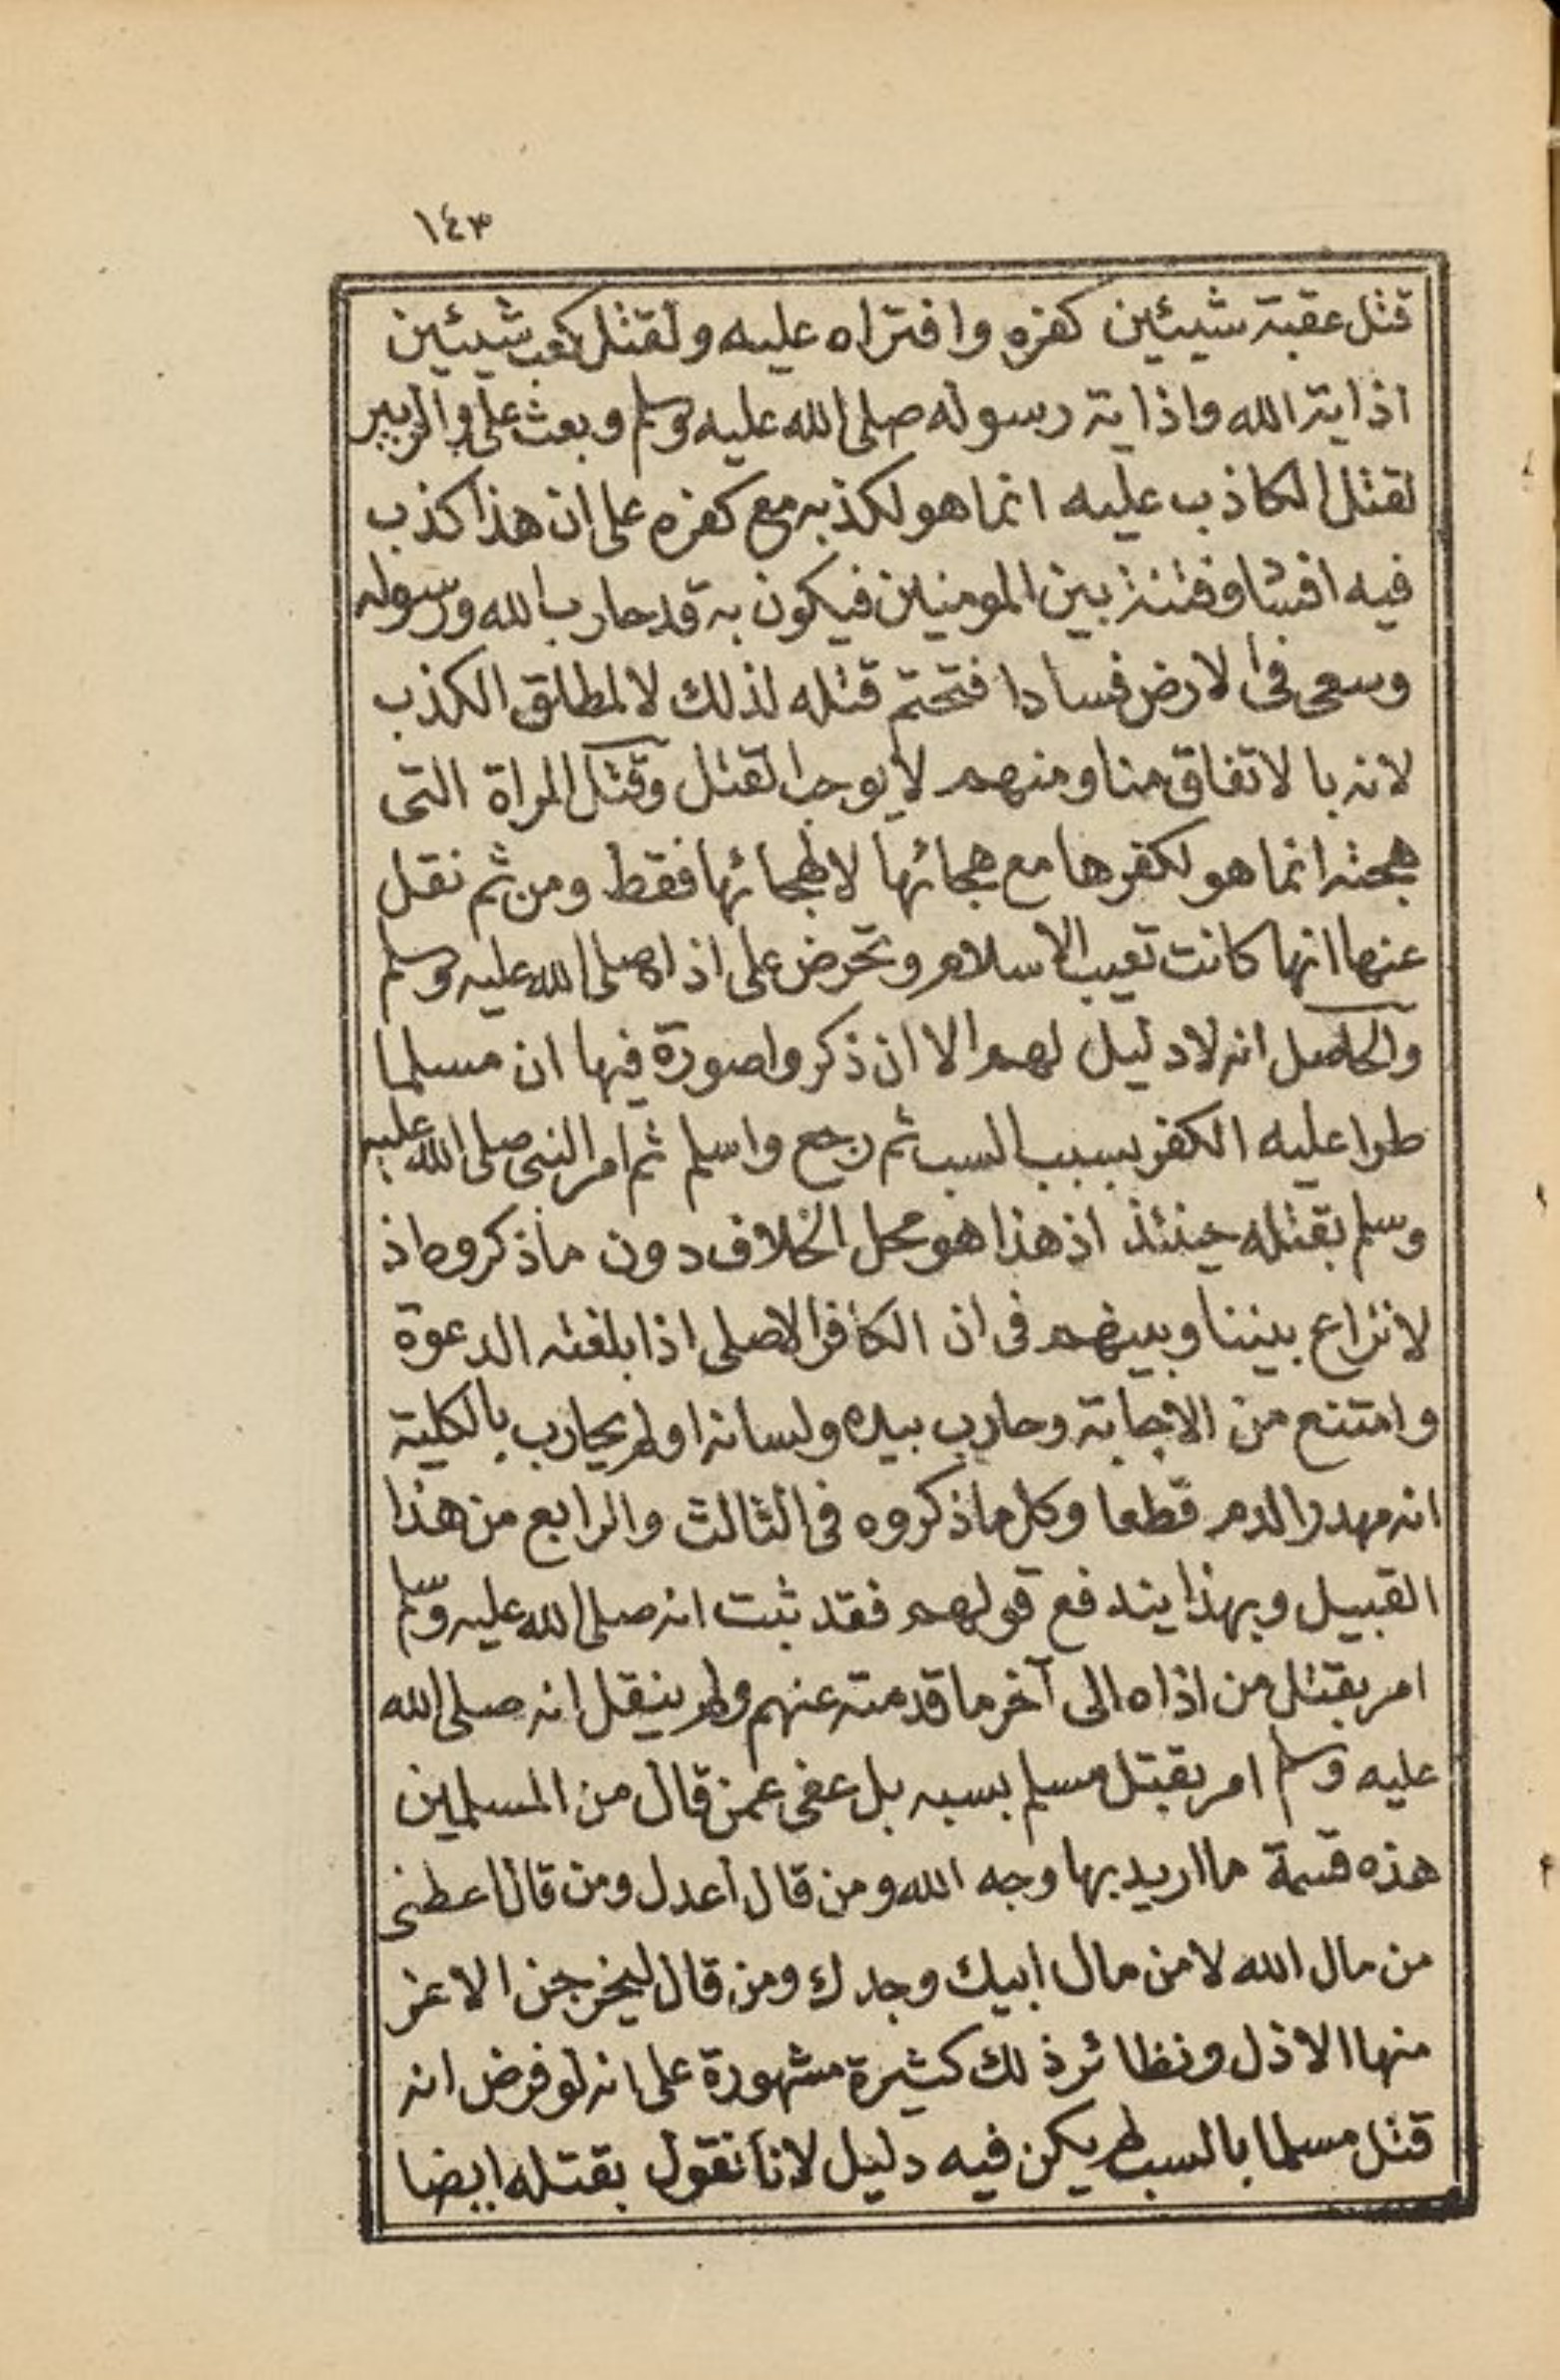 ١٤٣
قتل عقبة شيئين كفره وافتراه عليه ولقتل كعب شيئين
اذاية الله واذاية رسوله صلى الله عليه وسلم وبعث على والزبير
لقتل الكاذب عليه انما هو لكذبه مع كفره على ان هذا كذب
فيه افشا وفتنة بين المومنين فيكون به قد حارب الله ورسوله
وسعى فى الارض فسادا فتحتم قتله لذلك لا لمطلق الكذب
لانه با لاتفاق منا ومنهم لا يوجب القتل وقتل المراة التى
هجته انما هو لكفرها مع هجائها لا لهجائها فقط ومن ثم نقل
عنها انها كانت تعيب الاسلام وتحرض على اذاه صلى الله عليه وسلم
والحاصل انه لا دليل لهم الا ان ذكروا صورة فيها ان مسلما
طرا عليه الكفر بسبب السب ثم رجع واسلم ثم امر النبى صلى الله عليه
وسلم بقتله حينئذ اذ هذا هو محل الخلاف دون ما ذكروه اذ
لا نزاع بيننا وبينهم فى ان الكافر الاصلى اذا بلغته الدعوة
وامتنع من الاجابة وحارب بيده ولسانه او لم يحارب بالكلية
انه مهدر الدم قطعا وكل ما ذكروه فى الثالث والرابع من هذا
القبيل وبهذا يندفع قولهم فقد ثبت انه صلى الله عليه وسلم
امر بقتل من اذاه الى آخر ما قدمته عنهم ولم ينقل انه صلى الله
عليه وسلم امر بقتل مسلم بسبه بل عفى عمن قال من المسلمين
هذه قسمة ما اريد بها وجه الله ومن قال اعدل ومن قال اعطنى
من مال الله لا من مال ابيك وجدك ومن قال ليخرجن الاعز
منها الاذل ونظائر ذلك كثيرة مشهورة على انه لو فرض انه
قتل مسلما بالسب لم يكن فيه دليل لانا نقول بقتله ايضا